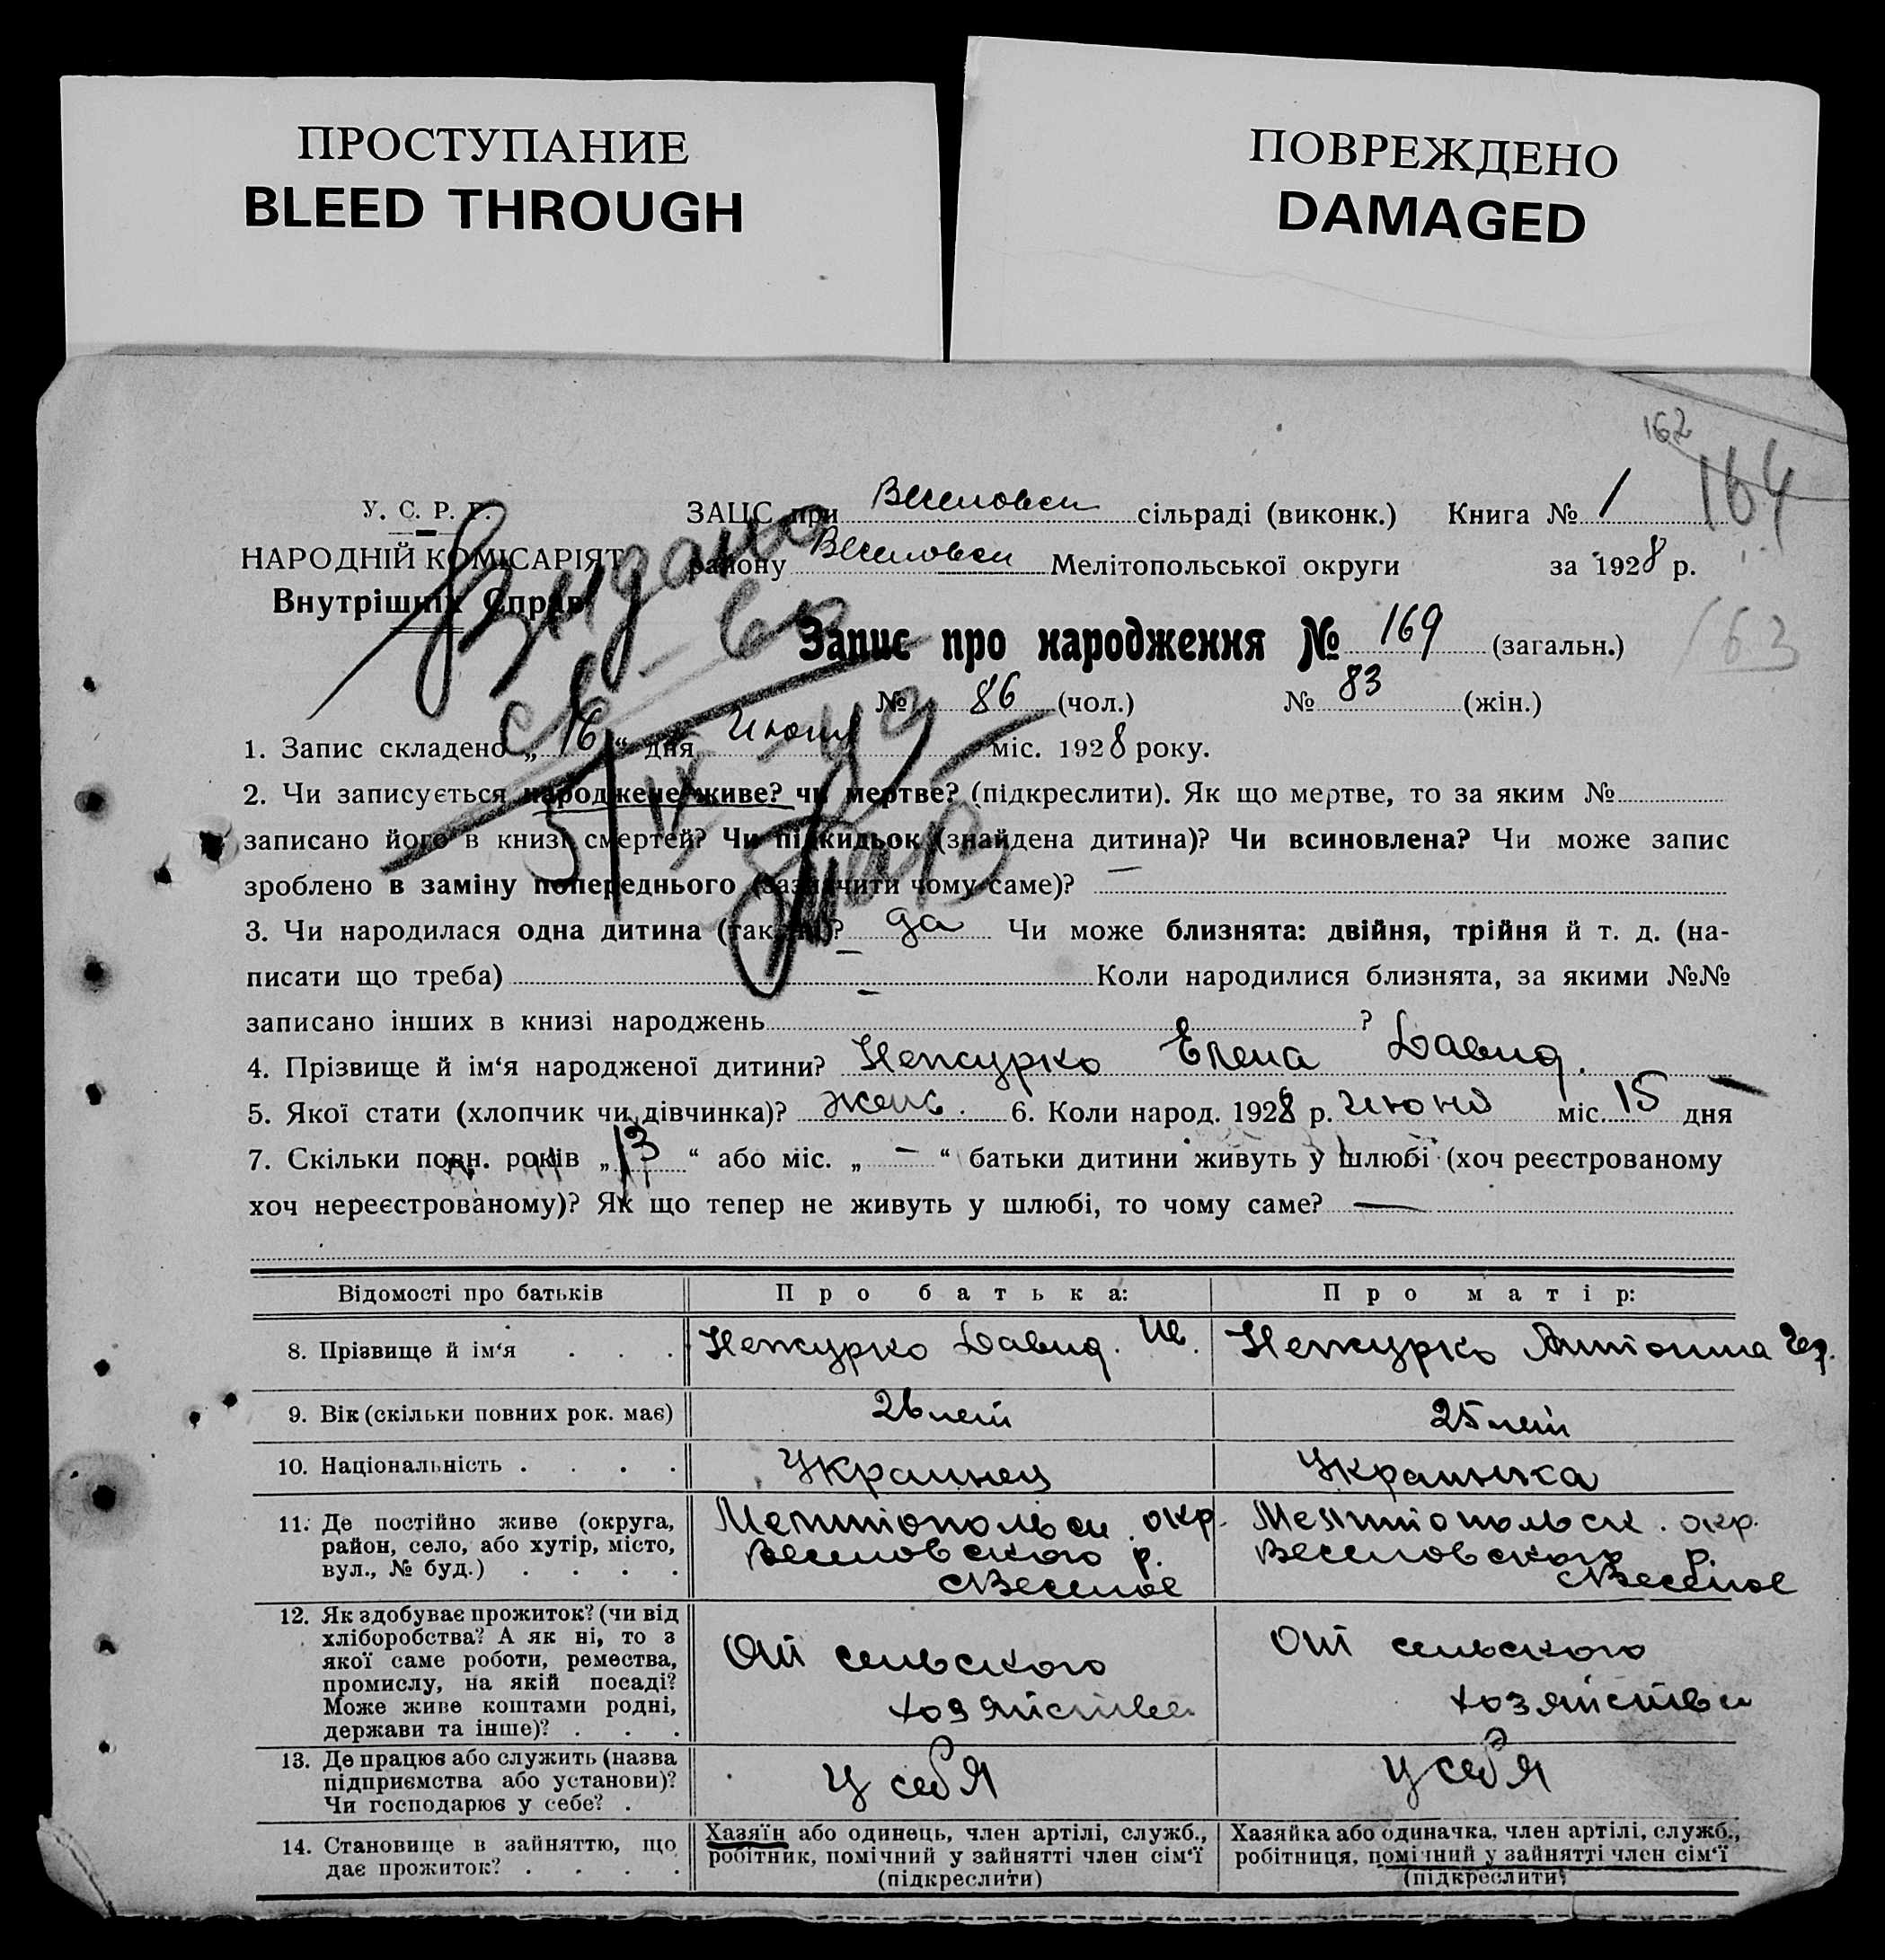 ПРОСТУПАНИЕ
BLEED THROUGH
ПОВРЕЖДЕНО
DAMAGED
162
164
У. С. Р. Р.
ЗАЦС при Веселовск сільраді (виконк.) Книга № 1
НАРОДНІЙ КОМІСАРІЯТ
району Веселовск Мелітопольської округи за 1928 р.
Внутрішніх Справ
Видано
Запис про народження № 169 (загальн.)
163
№ 86 (чол.) № 83 (жін.)
1. Запис складено „ 16 “ дня июня міс. 1928 року.
2. Чи записується народжене живе? чи мертве? (підкреслити). Як що мертве, то за яким №
записано його в книзі смертей? Чи підкидьок (знайдена дитина)? Чи всиновлена? Чи може запис
зроблено в заміну попереднього (зазначити чому саме)? —
3. Чи народилася одна дитина (так ні)? да Чи може близнята: двійня, трійня й т. д. (на-
писати що треба) — Коли народилися близнята, за якими №№
записано інших в книзі народжень — ?
4. Прізвище й ім‘я народженої дитини? Нежурко Елена Давид.
5. Якої стати (хлопчик чи дівчинка)? женс. 6. Коли народ. 1928 р. июня міс. 15 дня
7. Скільки повн. років „ 3 “ або міс. „ — “ батьки дитини живуть у шлюбі (хоч реєстрованому
хоч нереєстрованому)? Як що тепер не живуть у шлюбі, то чому саме? —
Відомості про батьків Про батька: Про матір:
8. Прізвище й ім‘я . . . Нежурко Давид. Ив. Нежурко Антонина
9. Вік (скільки повних рок. має) 26 лет 25 лет
10. Національність . . . . Украинец Украинка
11. Де постійно живе (округа, Мелитопольск. окр. Мелитопольск. окр.
район, село, або хутір, місто, Веселовского р. Веселовского р.
вул., № буд.) . . . . с Веселое с Веселое
12. Як здобуває прожиток? (чи від
хліборобства? А як ні, то з
якої саме роботи, ремества, От сельского От сельского
промислу, на якій посаді?
Може живе коштами родні, хозяйства хозяйства
держави та інше)? . . .
13. Де працює або служить (назва
підприємства або установи)? У себя У себя
Чи господарює у себе? .
14. Становище в зайняттю, що Хазяїн або одинець, член артілі, служб., Хазяйка або одиначка, член артілі, служб.,
дає прожиток? . . . . робітник, помічний у зайнятті член сім‘ї робітниця, помічний у зайнятті член сім‘ї
(підкреслити) (підкреслити)